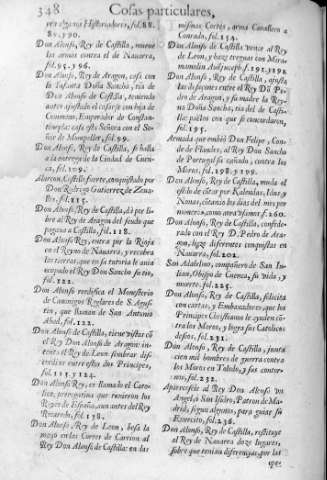 348 Cosas particulares,
ren algunos Historiadores, fol. 88.
89. y 90.
Don Alonso, Rey de Castilla, mueve
las armas contra el de Navarra,
fol. 95. y 96.
Don Alonso, Rey de Aragon, casa con
la Infanta Doña Sancha, tia de
Don Alonso de Castilla, teniendo
antes ajustado el casarse con hija de
Commeno, Emperador de Constan-
tinopla: casa esta Señora con el Se-
ñor de Mompeller, fol. 99.
Don Alonso, Rey de Castilla, se halla
a la entrega de la Ciudad de Cuen-
ca, fol. 109.
Alarcon, Castillo fuerte, conquistado por
Don Rodrigo Gutierrez
fol. 115.
Don Alonso, Rey de Castilla, dà por li-
bre al Rey de Aragon del feudo que
pagava a Castilla, fol. 118.
Don Alonso, Rey, entra por la Rioja
en el Reyno de Navarra, y recobra
las tierras, que en su tutoria le avia
ocupado el Rey Don Sancho su tio,
fol. 122.
Don Alonso reedifica el Monasterio
de Canonigos Reglares de S. Agus-
tin, que llaman de San Antonio
Abad, fol. 122.
Don Alonso de Castilla, tiene vistas cõ
el Rey Don Alonso de Aragon: in-
tenta el Rey de Leon sembrar dis-
cordias entre estos dos Principes,
fol. 115. y 124.
Don Alonso Rey, es llamado el Cato-
lico, prerogativa que tuvieron los
Reyes de España, aun antes del Rey
Recaredo, fol. 138.
Don Alonso, Rey de Leon, besa la
mano en las Cortes de Carrion al
Rey Don Alonso de Castilla: en las
mismas Cortes, arma Cavallero a
Conrado, fol. 154.
Don Alonso de Castilla vence al Rey
de Leon, y haze treguas con Mira-
mamolin fol. 191. 192.
Don Alonso, Rey de Castilla, ajusta
las disensiones entre el Rey Dõ Pe-
dro de Aragon, y su madre la Rey-
na Doña Sancha, tia del de Casti-
lla: pactos con que se concordaron,
fol. 195.
Armada que embiò Don Felipe, Con-
de de Flandes, al Rey Don Sancho
de Portugal su cuñado, contra los
Moros, fol. 198. y 199.
Don Alonso, Rey de Castilla, muda el
estilo de citar por Kalendas, Idus, y
Nonas, citando los dias del mes por
numeros: como aora usamos, f. 260.
Don Alonso, Rey de Castilla, confede-
rado con el Rey D. Pedro de Ara-
gon, haze diferentes conquistas en
Navarra, fol. 202.
San compañero de San Iu-
lian, Obispo de Cuenca, su vida, y
muerte, fol. 225.
Don Alonso, Rey de Castilla, solicita
con cartas, y Embaxadas, que los
Principes Christianos le ayuden cõ-
tra los Moros, y logra sus Catolicos
deseos, fol. 231.
Don Alonso, Rey de Castilla, junta
cien mil hombres de guerra contra
los Moros en Toledo, y los susten-
ta, fol. 232.
Aparecesele al Rey Don Alonso un
Angel, ò San Isidro, Patron de Ma-
drid, segun algunos, para guiar su
Exercito, fol. 236.
Don Alonso, Rey de Castilla, restituye
al Rey de Navarra doze lugares,
sobre que tenian diferencias, por las